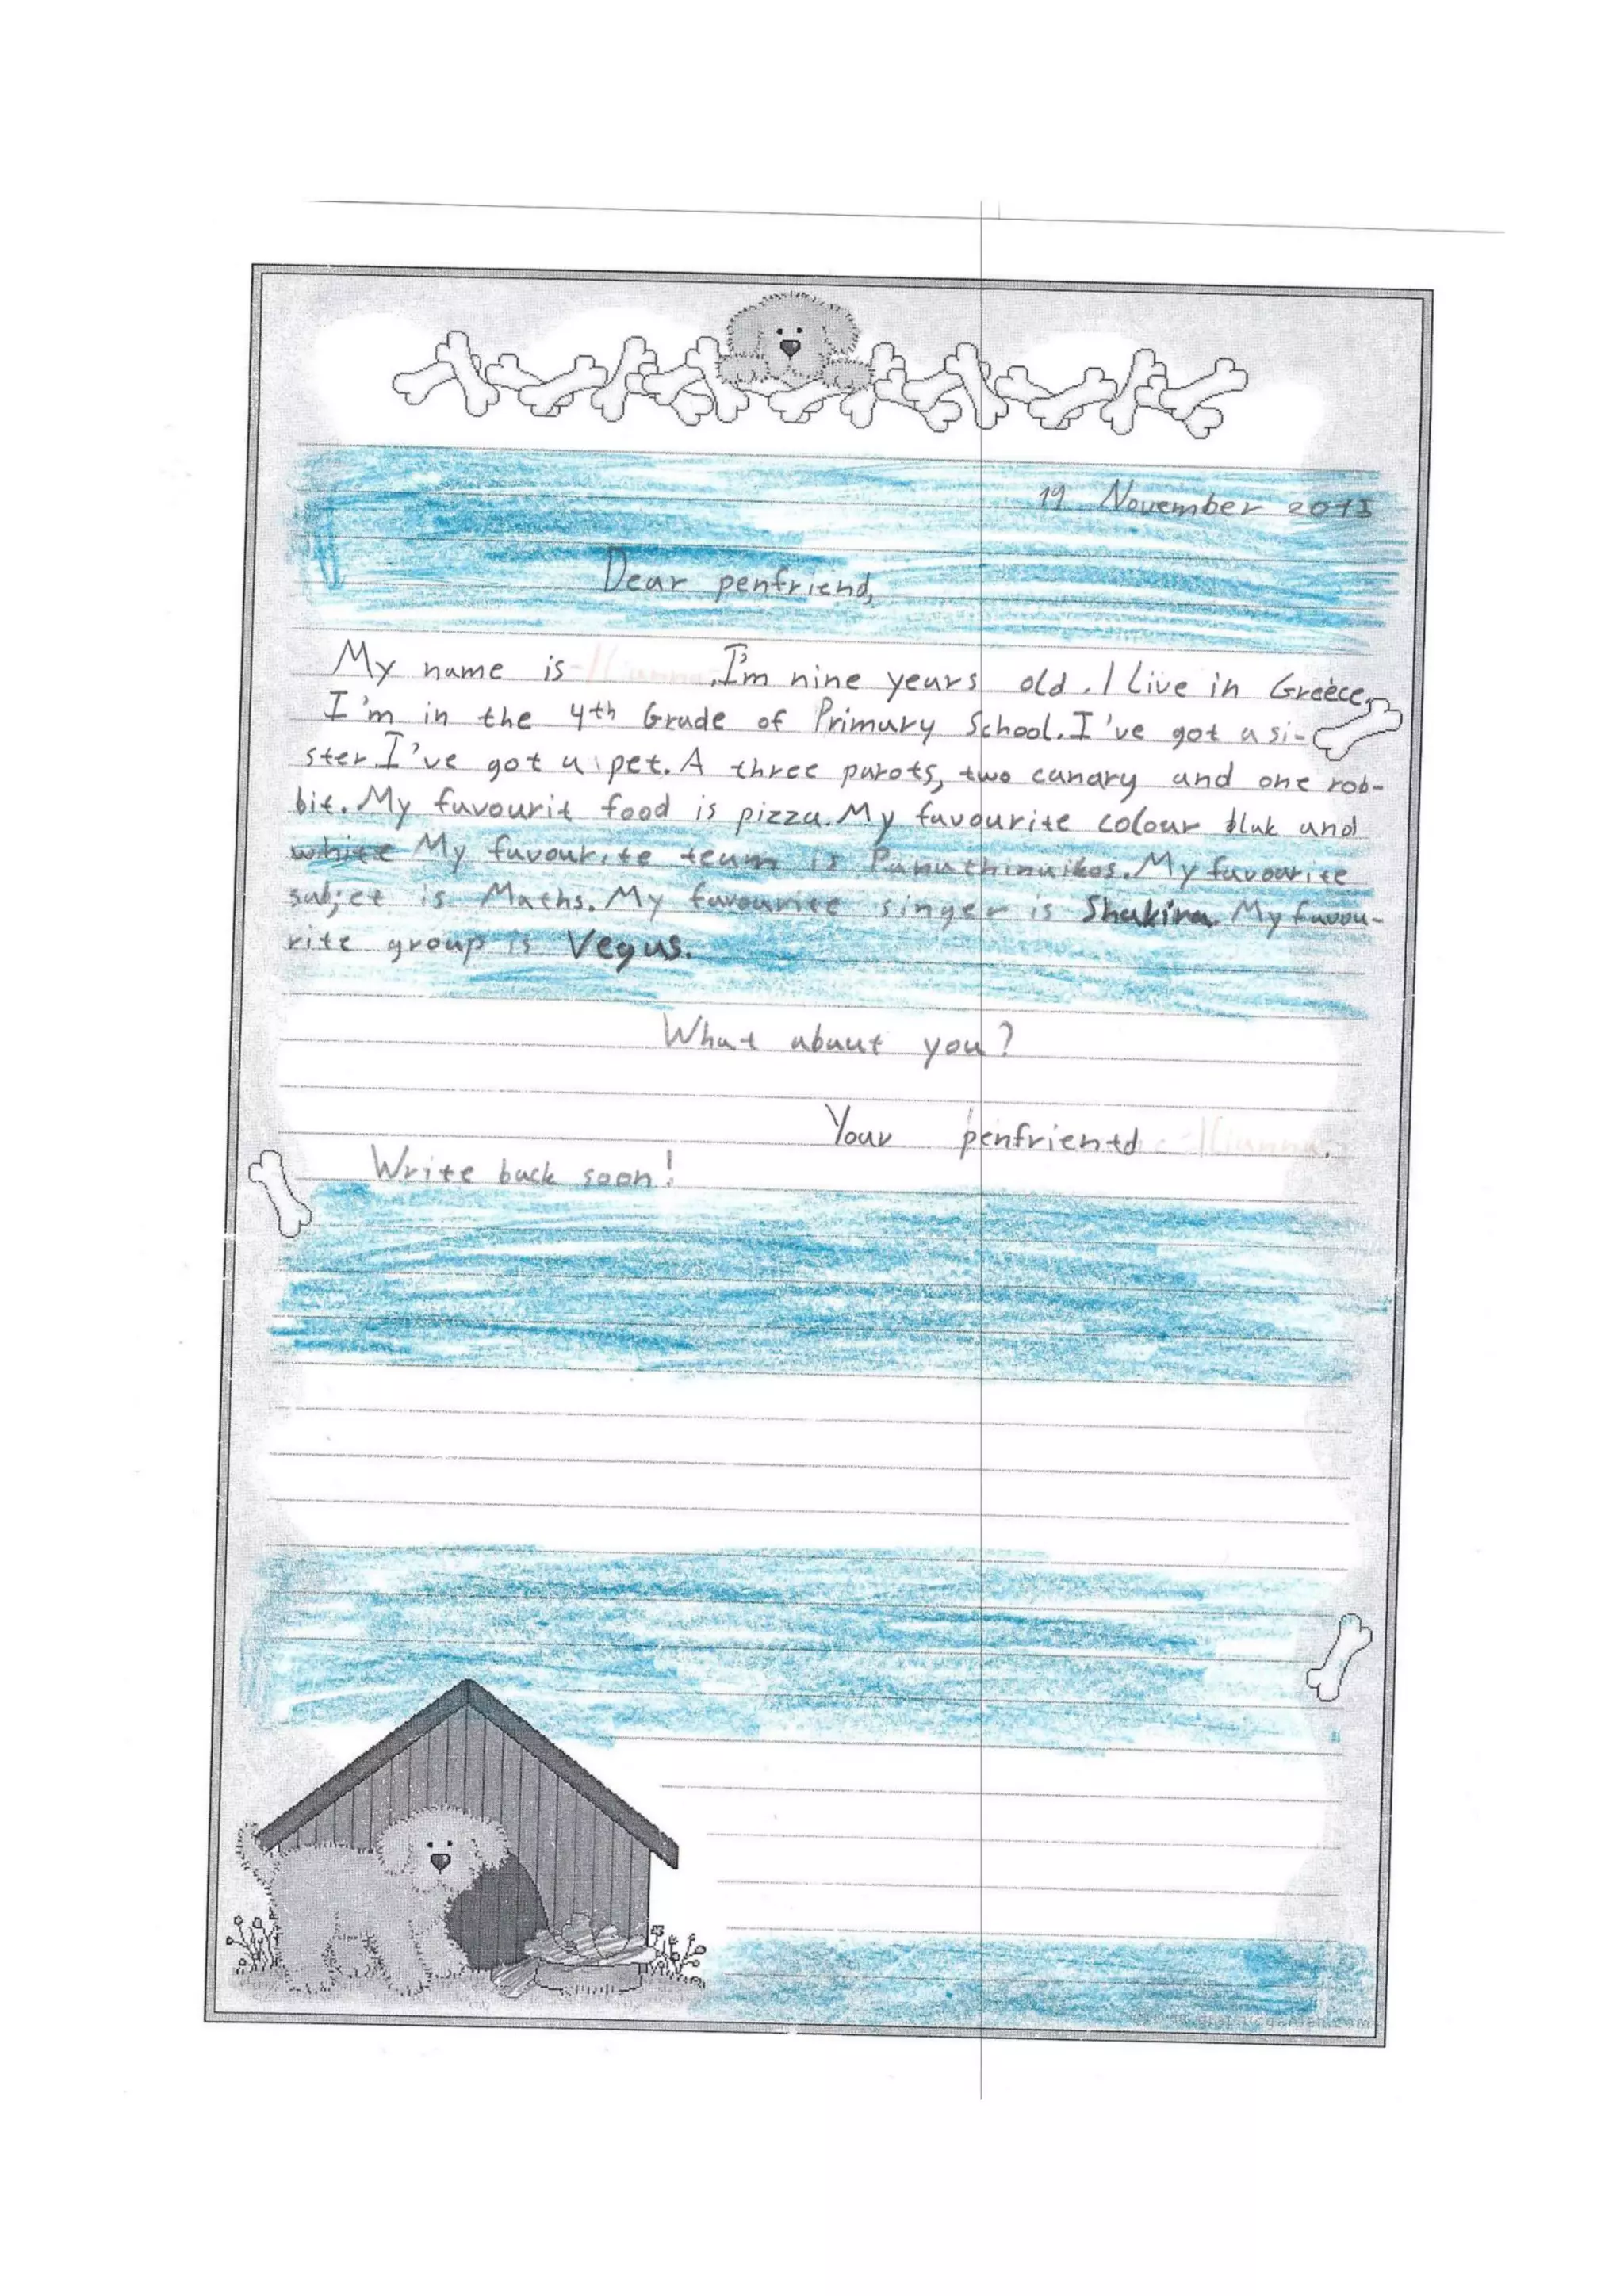 19 November 2015
Dear penfriend,
My name is .I'm nine years old. I Live in Greece,
I'm in the 4th Grade of Primary School. I've got a si-
ster. I've got a pet. A three parots, two canary and one rob-
bit. My favourit food is pizza. My favourite colour bluk and
white My favourite team is Panathinaikos. My favourite
subjet is Maths. My favourite singer is Shakira. My favou-
rite group is Vegas.
What abaut you?
Your penfriend .
Write back soon!